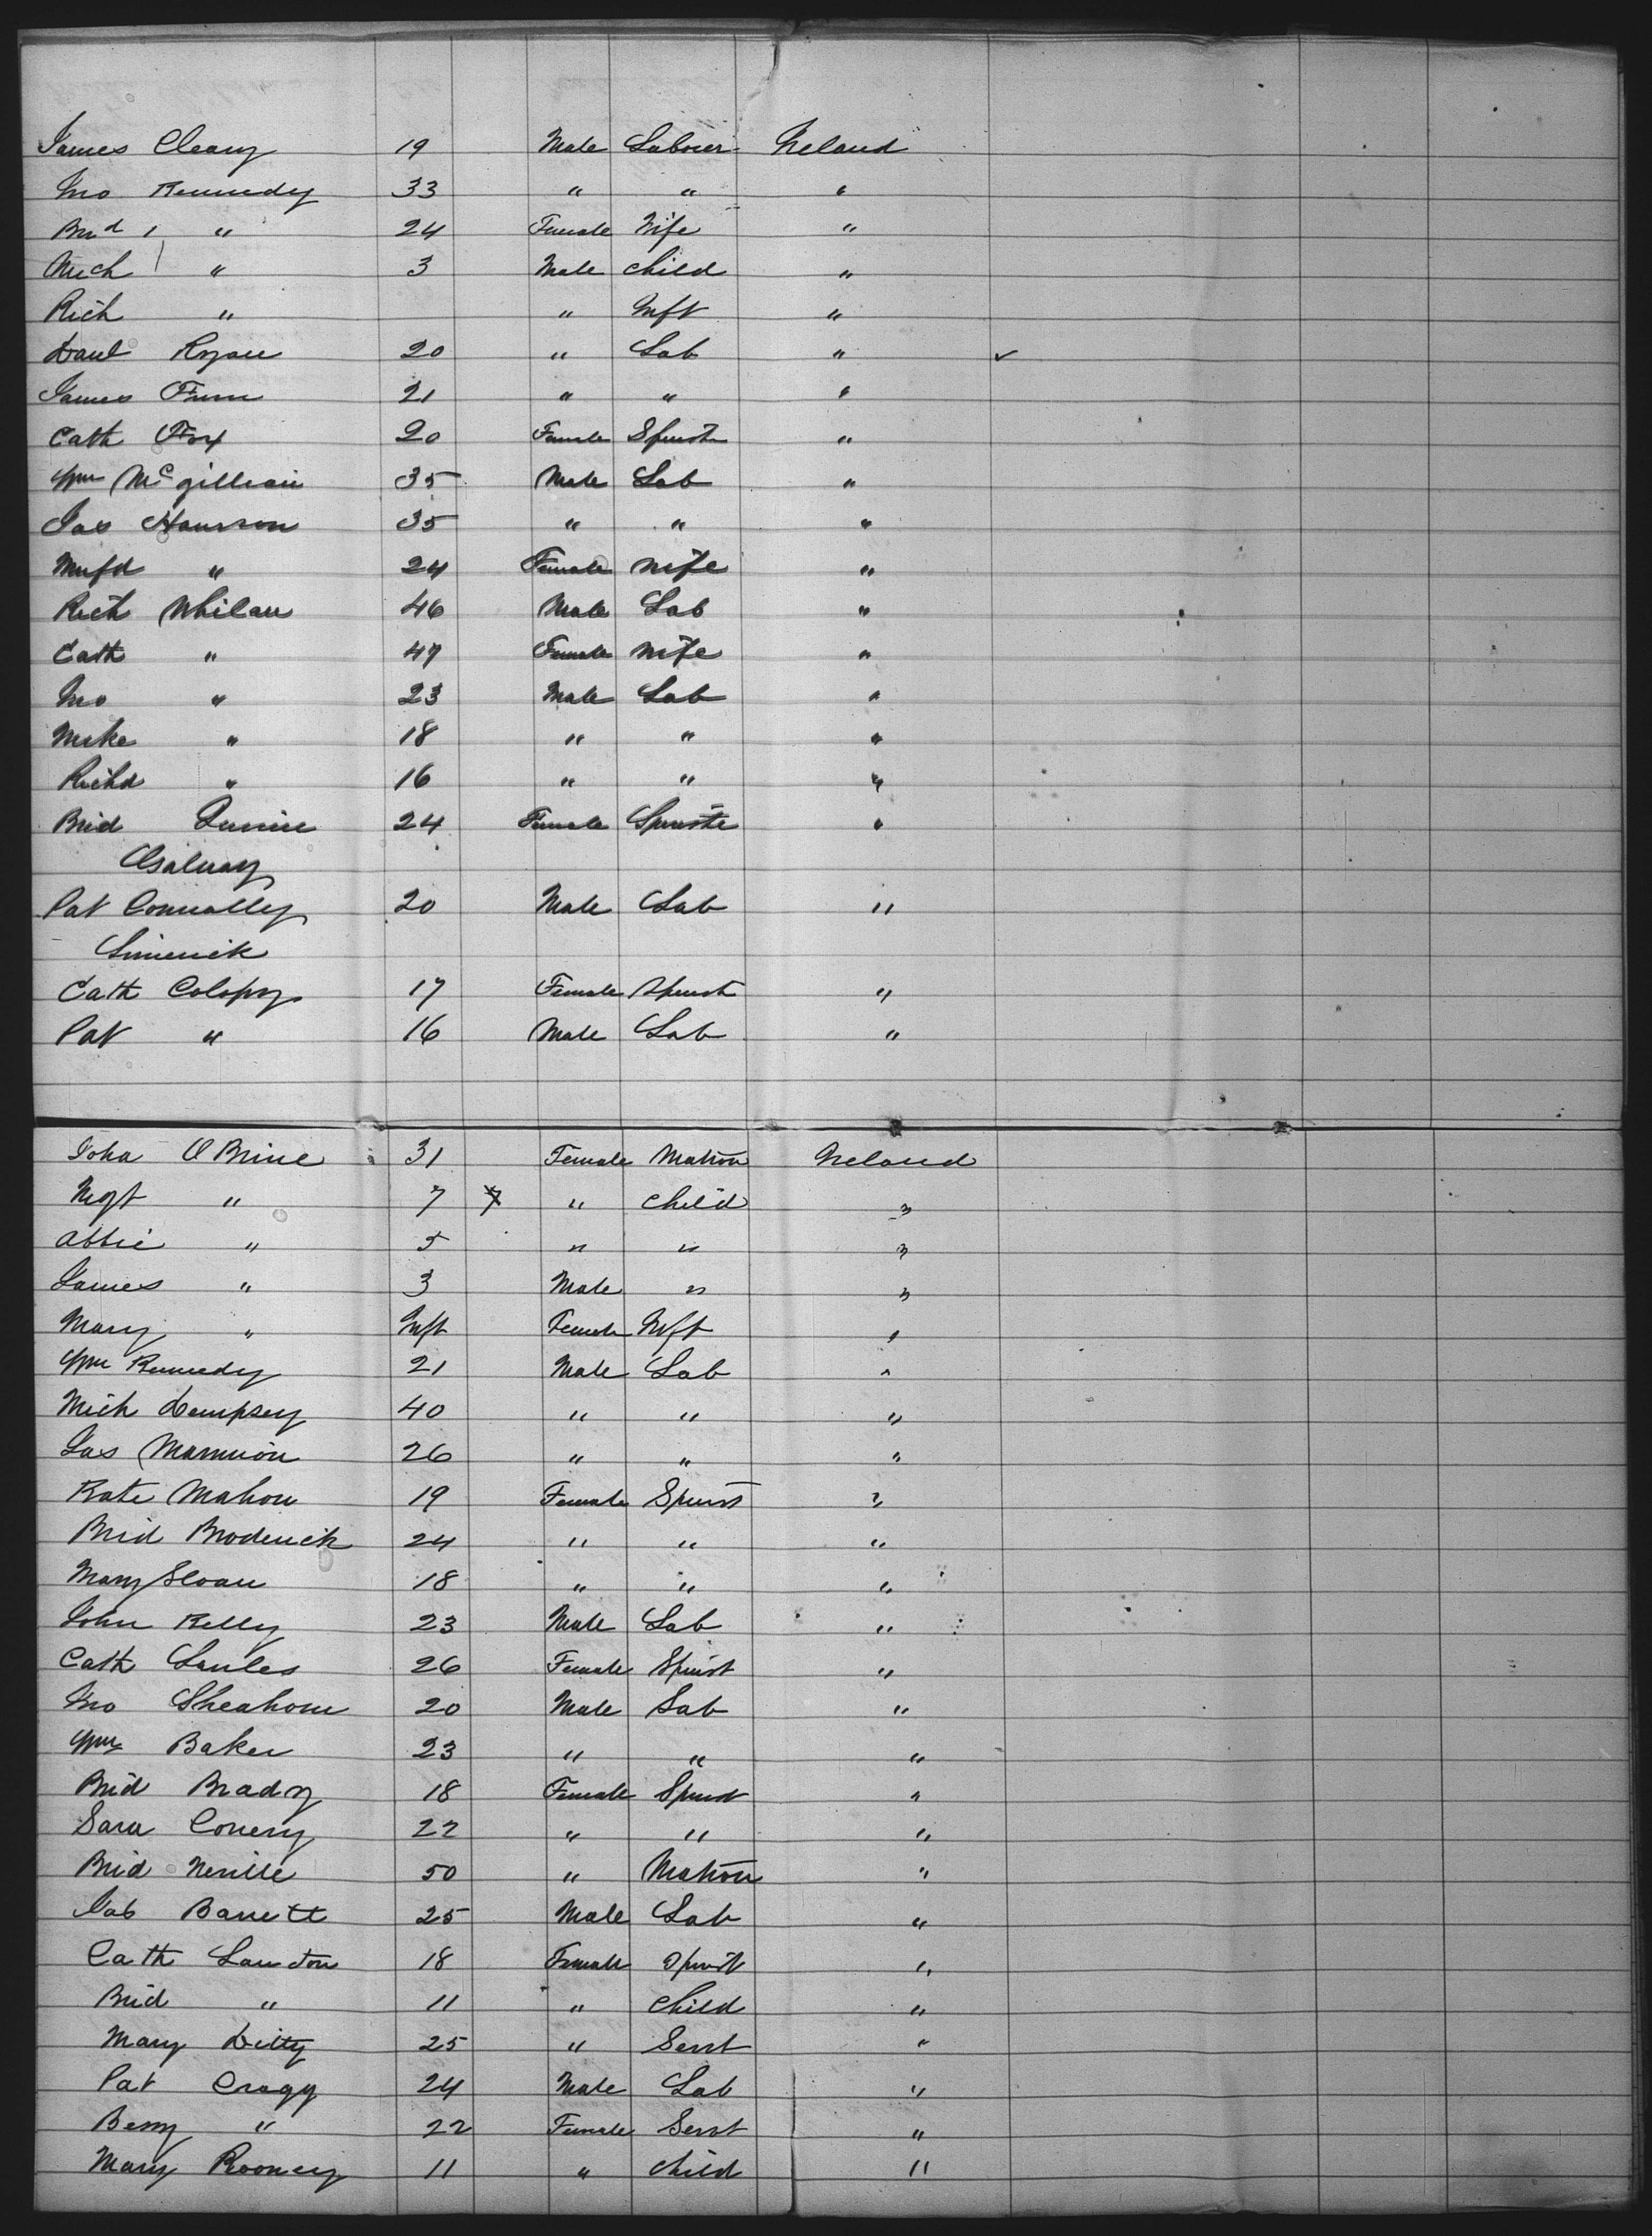 James Cleary 19 Male Labourer Ireland
Jno Kennedy 33 " " "
Brid " 24 Female Wife "
Mich " 3 Male Child "
Rich " " Inft "
Danl Ryan 20 " Lab " ✓
James Finn 21 " " "
Cath Fox 20 Female Spinst "
Wm McGillian 35 Male Lab "
Jas 35 " " "
" 24 Female Wife "
Rich Whilan 46 Male Lab "
Cath " 47 Female Wife "
Jno " 23 Male Lab "
Mike " 18 " " "
Richd " 16 " " "
Brid 24 Female Spinste "
Galway
Pat Connolly 20 Male Lab "
Limerick
Cath Colopy 17 Female Spinst "
Pat " 16 Male Lab "
Joha O Brine 31 Female Matron Ireland
Mgt " 7 7 " Child "
Abbie " 5 " " "
James " 3 Male " "
Mary " Inft Female Inft "
Wm Kennedy 21 Male Lab "
Mich Dempsey 40 " " "
Jas Marmion 26 " " "
Kate Mahon 19 Female Spinst "
Brid Broderick 24 " " "
Mary Sloan 18 " " "
John Kelly 23 Male Lab "
Cath 26 Female Spinst "
Jno Sheahom 20 Male Lab "
Wm Baker 23 " " "
Brid Brady 18 Female Spinst "
Sara Conery 22 " " "
Brid Neville 50 " Matron "
Jas Barrett 25 Male Lab "
Cath Landon 18 Female Spinst "
Brid " 11 " Child "
Mary Ditty 25 " Servt "
Pat Cragy 24 Male Lab "
Bessy " 22 Female Servt "
Mary Rooney 11 " Child "